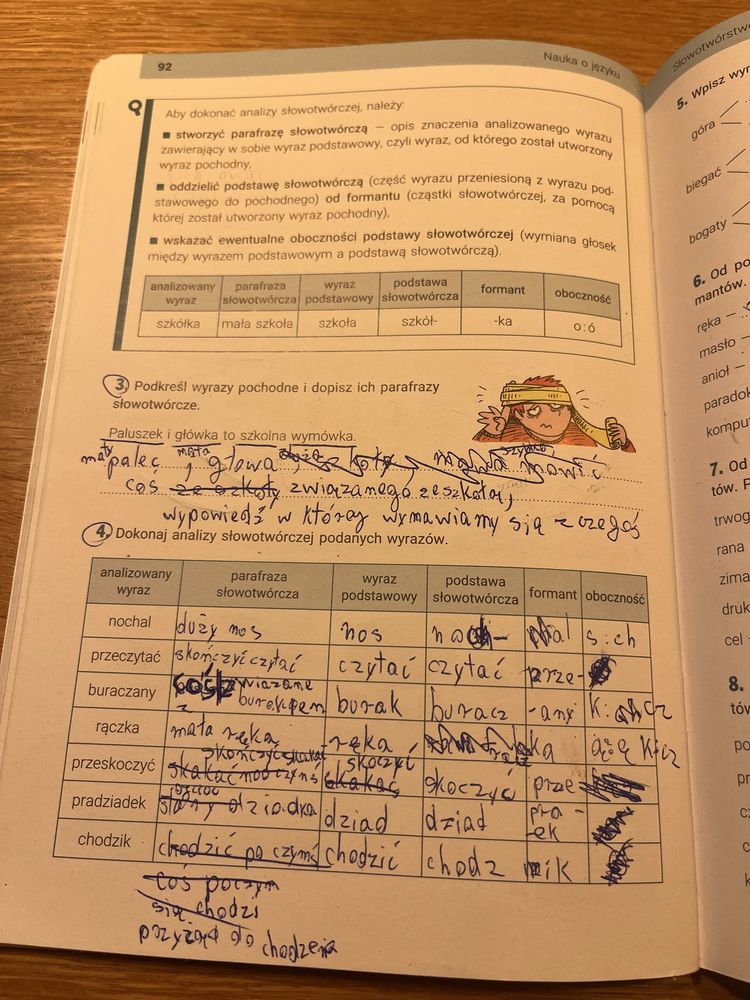 92
Nauka o języku
Aby dokonać analizy słowotwórczej, należy:
■ stworzyć parafrazę słowotwórczą – opis znaczenia analizowanego wyrazu
zawierający w sobie wyraz podstawowy, czyli wyraz, od którego został utworzony
wyraz pochodny,
■ oddzielić podstawę słowotwórczą (część wyrazu przeniesioną z wyrazu pod-
stawowego do pochodnego) od formantu (cząstki słowotwórczej, za pomocą
której został utworzony wyraz pochodny),
■ wskazać ewentualne oboczności podstawy słowotwórczej (wymiana głosek
między wyrazem podstawowym a podstawą słowotwórczą).
analizowany wyraz parafraza słowotwórcza wyraz podstawowy podstawa słowotwórcza formant oboczność
szkółka mała szkoła szkoła szkół- -ka o:ó
3. Podkreśl wyrazy pochodne i dopisz ich parafrazy
słowotwórcze.
Paluszek i główka to szkolna wymówka.
mały palec, mała głowa
coś związanego ze szkołą,
wypowiedź w której wymawiamy się z czegoś
4. Dokonaj analizy słowotwórczej podanych wyrazów.
analizowany wyraz parafraza słowotwórcza wyraz podstawowy podstawa słowotwórcza formant oboczność
nochal duży nos nos al s:ch
przeczytać skończyć czytać czytać czytać prze-
buraczany burak buracz -any k: cz
rączka mała ręka ręka ka ą:ę k:cz
przeskoczyć skoczyć skoczyć prze
pradziadek dziadka dziad dziad pra- -ek
chodzik chodzić po czymś chodzić chodz ik
coś po czym
się chodzi
przyrząd do chodzenia
Słowotwórstwo
5. Wpisz wyr
góra
biegać
bogaty
6. Od po
mantów.
ręka –
masło –
anioł –
paradok
kompu
7. Od
tów. P
trwog
rana
zima
druk
cel
8.
tów
po
pr